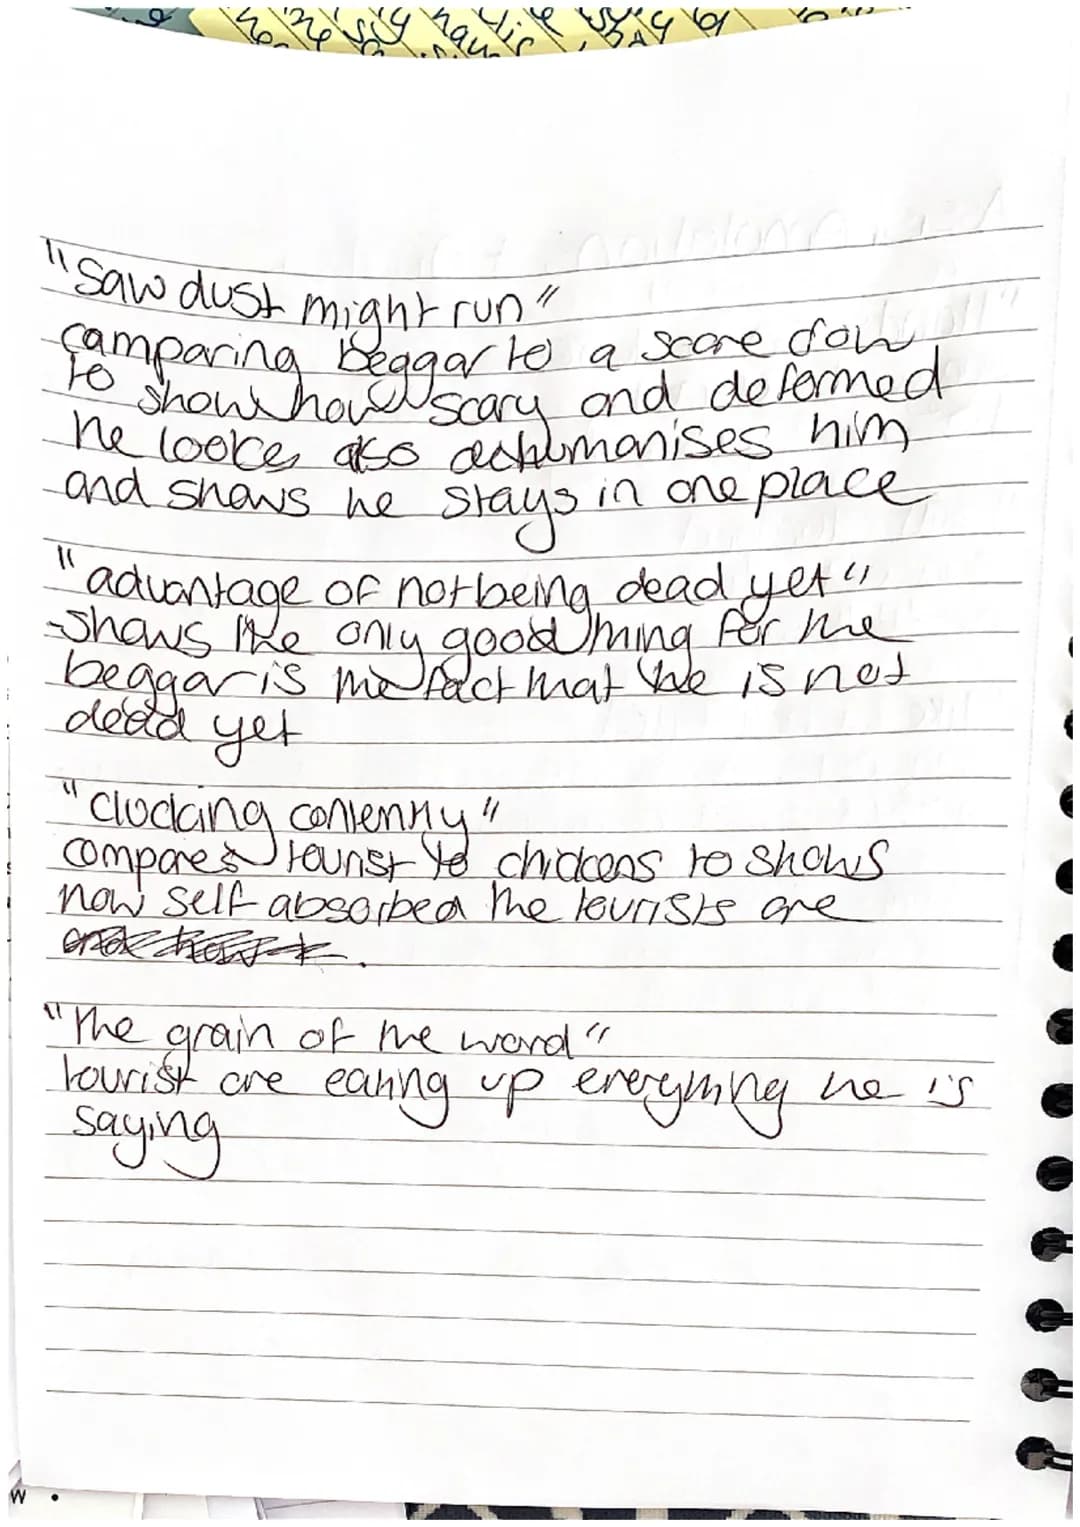 "Saw dust might run"
Comparing beggar to a scare crow
to show how scary and deformed
he looks also dehumanises him
and shows he stays in one place
"advantage of not being dead yet"
-Shows the only good thing for the
beggar is the fact that he is not
dead yet
"Clucking contently"
compares tourist to chickens to shows
how self absorbed the tourists are
"The grain of the word"
tourist are eating up everything he is
saying
W